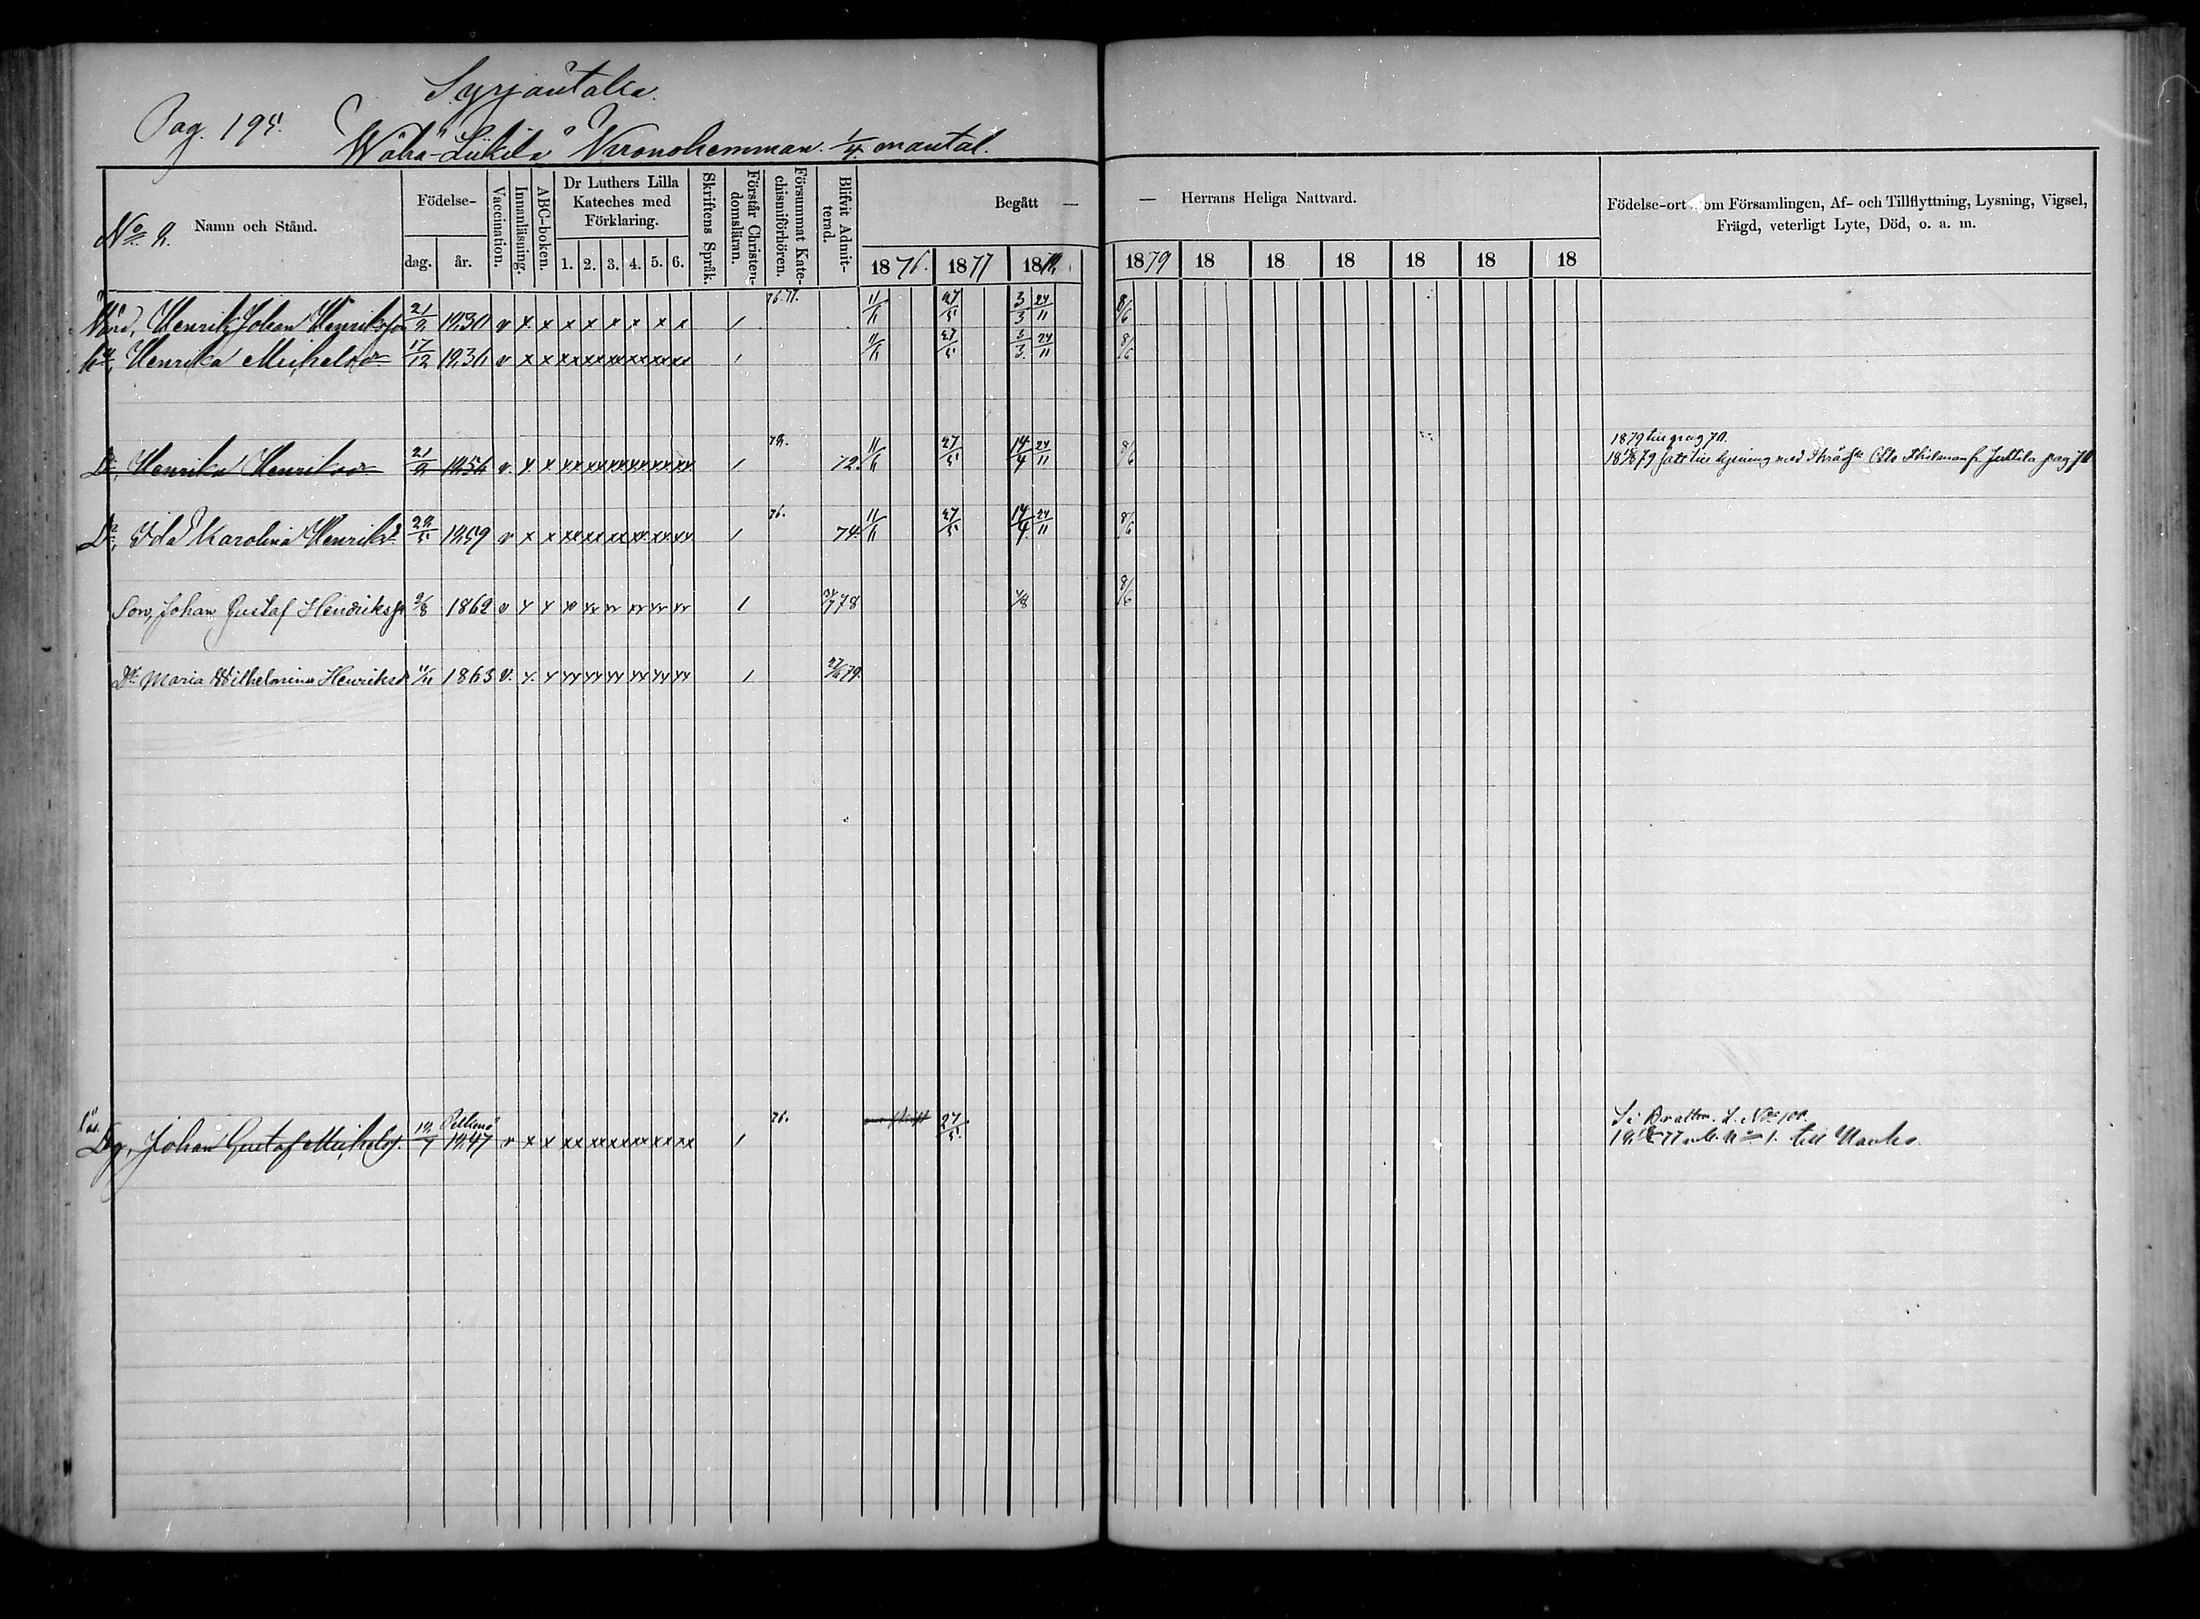 Pag. 195.
Syrjäntaka.
Wäha-Liikila Kronohemman. 1/4 mantal.
No 2.
Namn och Stånd.
Födelse-
dag.
år.
Vaccination.
Innanläsning.
ABC-boken.
Dr Luthers Lilla Kateches med Förklaring.
1. 2. 3. 4. 5. 6.
Skriftens Språk.
Förstår Christen-domsläran.
Försummat Kate-chismiförhören.
Blifvit Admit-terad.
Begått —
— Herrans Heliga Nattvard.
1876. 1877 1878 1879 18 18 18 18 18 18
Födelse-ort om Församlingen, Af- och Tillflyttning, Lysning, Vigsel,
Frägd, veterligt Lyte, Död, o. a. m.
Värd, Henrik Johan Henriksson 21/2 1830 v x x x x x x x x / 76.77. 11/6 27/5 3/3 24/11 8/6
hu, Henrika Michelsdr 17/12 1831 v x x xx xx xx xx xx xx / 11/6 27/5 3/3 24/11 8/6
1879 till pag 70.
Dr, Henrika Henriksdr 21/9 1856 v. x x xx xx xx xx xx xx / 78. 72. 11/6 27/5 14/4 24/11 8/6 79 till lysning med Otto fr. Juttila pag 70
Dr, Ida Karolina Henriksdr 22/5 1859 v x x xx xx xx xx xx xx / 76. 74. 11/6 27/5 14/4 24/11 8/6
Son, Johan Gustaf Henriksson 2/8 1862 v x x xx xx xx xx xx xx / 78 8/6
Dr Maria Wilhelmina Henriksdr 1863 v. x. x xx xx xx xx xx xx / 79.
Dg, Johan Gustaf Michelss. 1847 v x x xx xx xx xx xx xx / 76. 27/5.
77 No 1. till